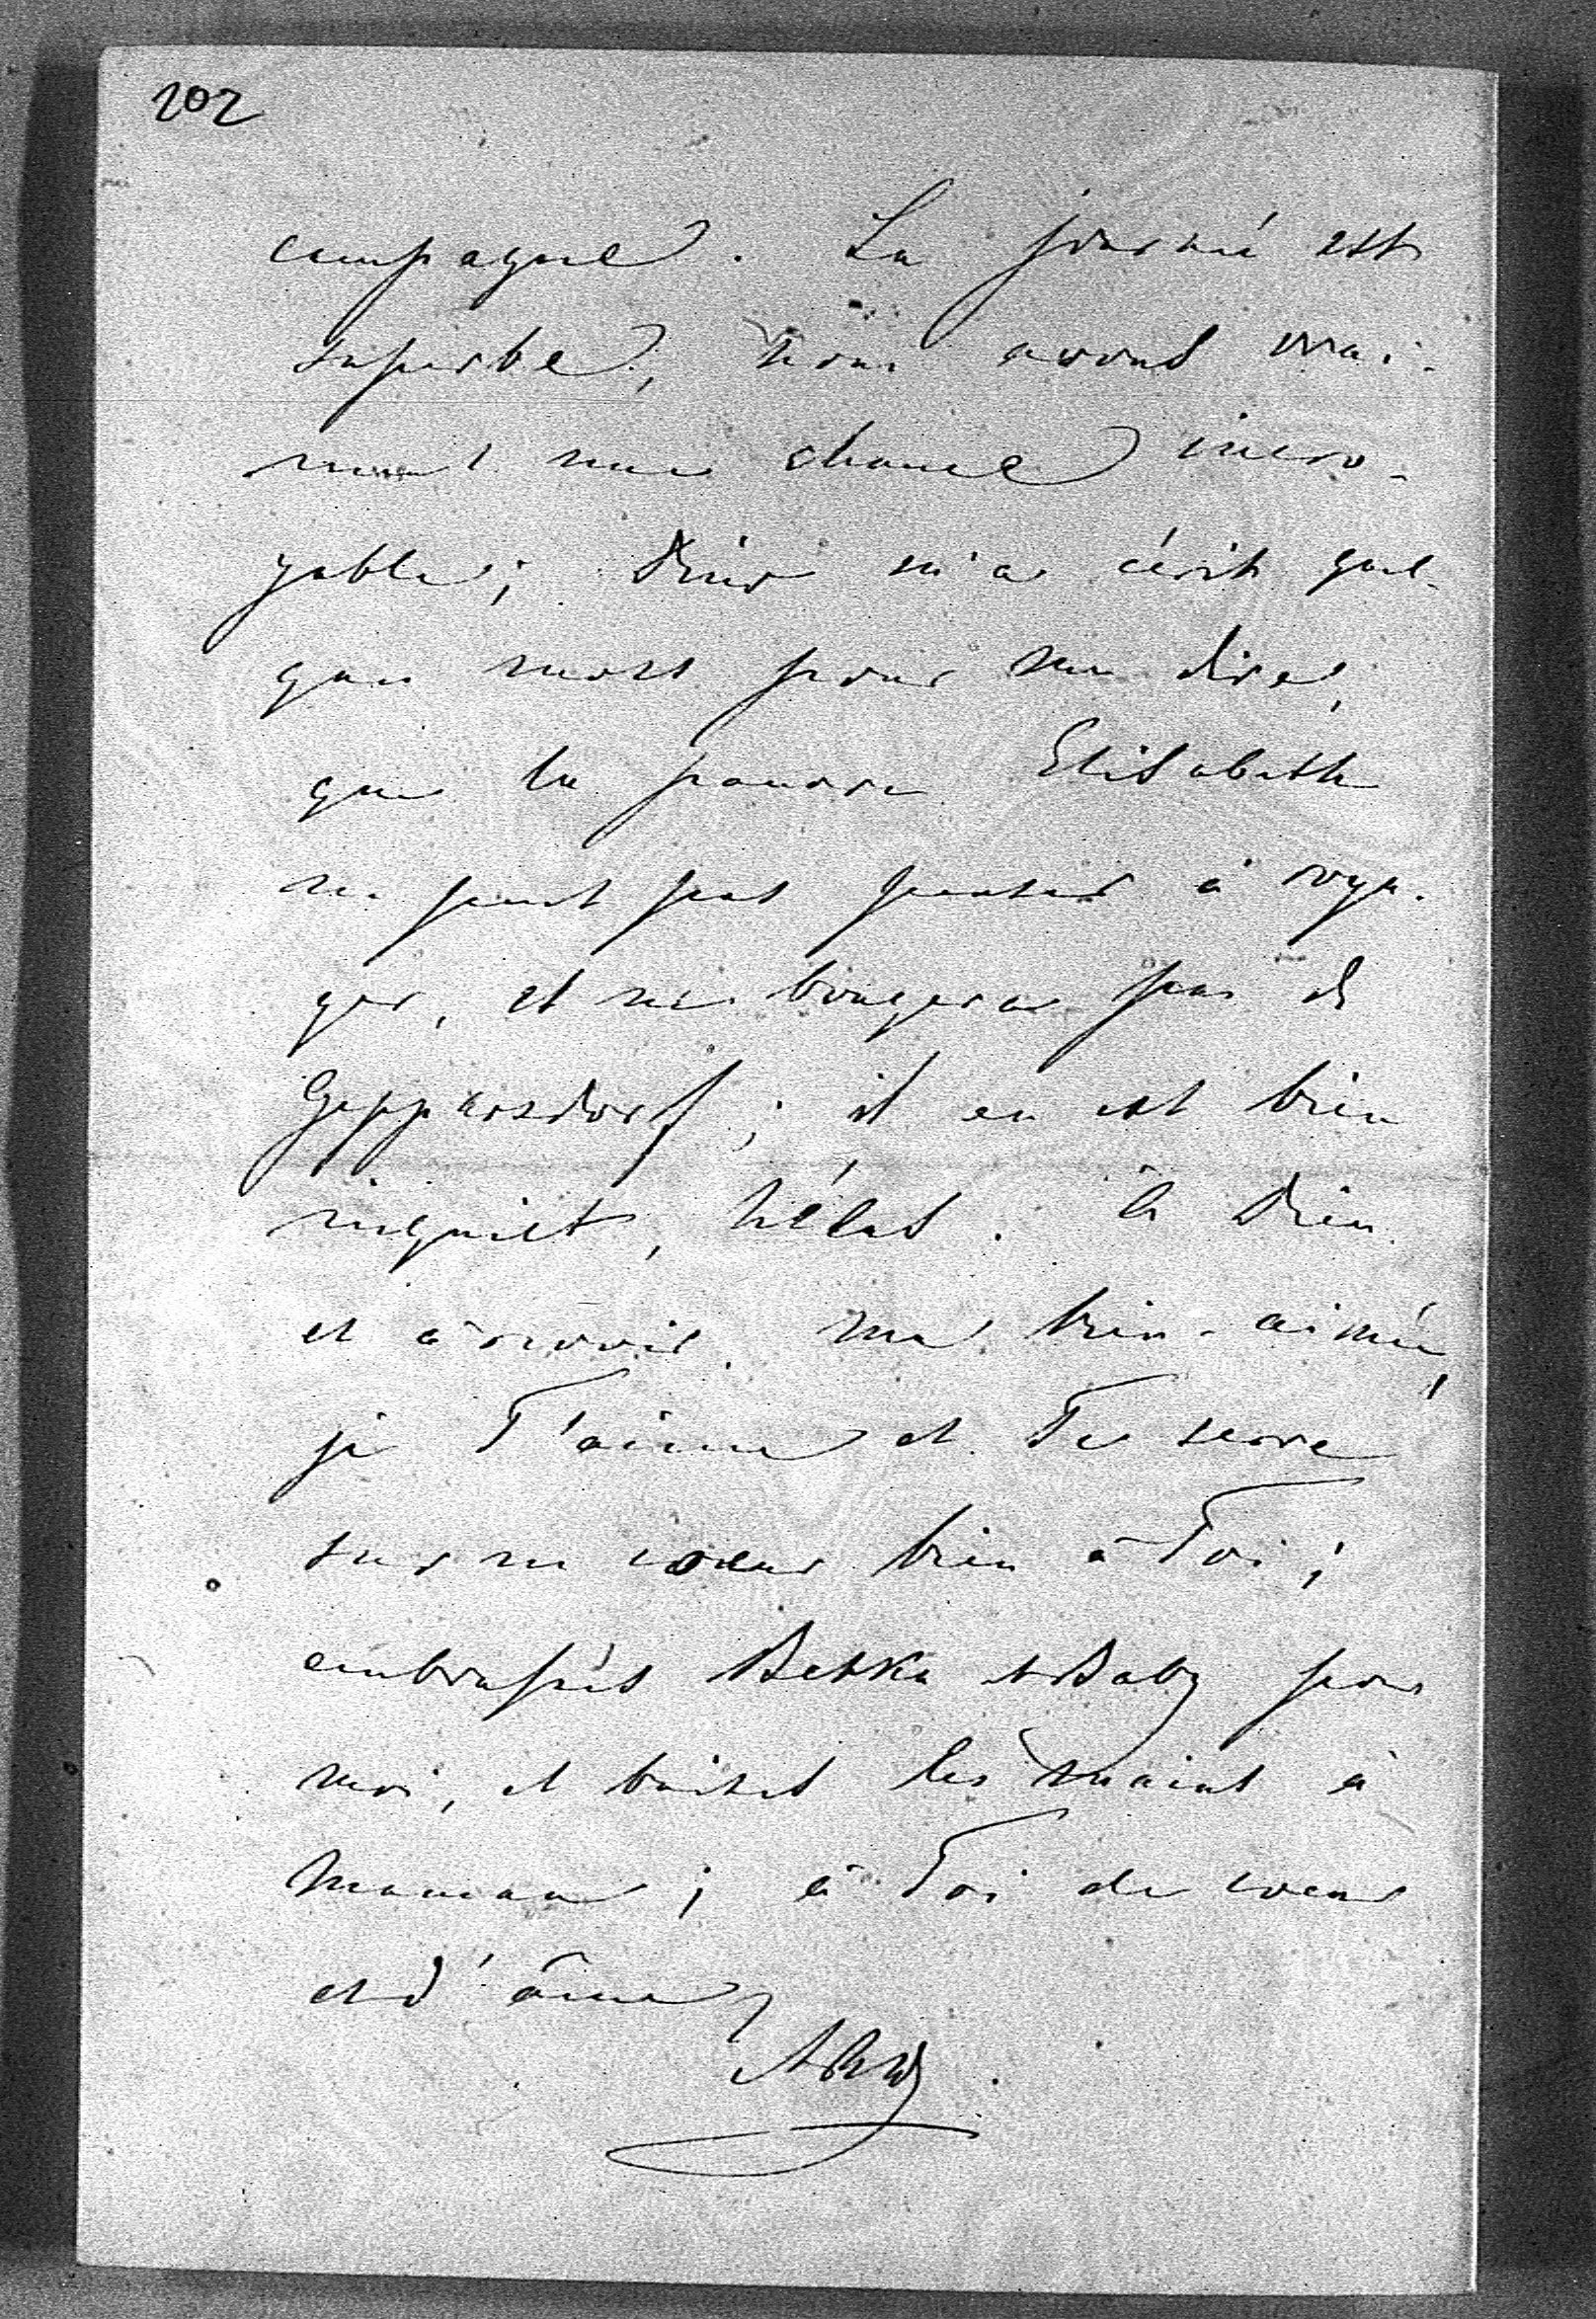 202
campagne. La journée est
superbe, nous avons vrai-
ment une chance incro-
yable; m'a écrit quel-
ques mots pour me dire,
que la pauvre Elisabeth
ne peut pas penser à voya-
ger, et ne bougera pas de
Geppersdorf; il en est bien
inquiet, hélas. à Dieu
et à revoir ma bien-aimée,
je T'aime et Te serre
sur un coeur bien à Toi;
embrassés Betka et Baby pour
moi, et baises les mains à
maman; à Toi de coeur
et d'âme